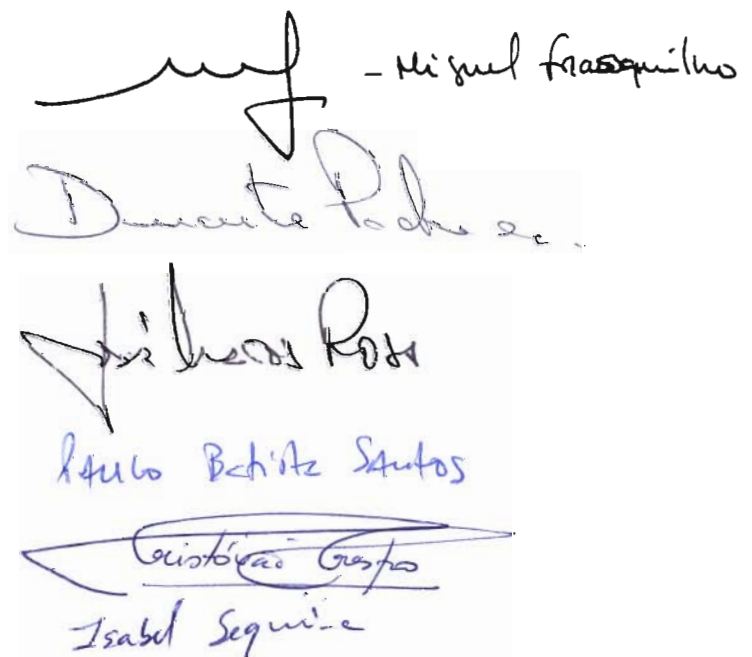 - Miguel Frasquilho
Duarte Pacheco
José Matos Rosa
Paulo Batista Santos
Cristóvão Crespo
Isabel Sequeira